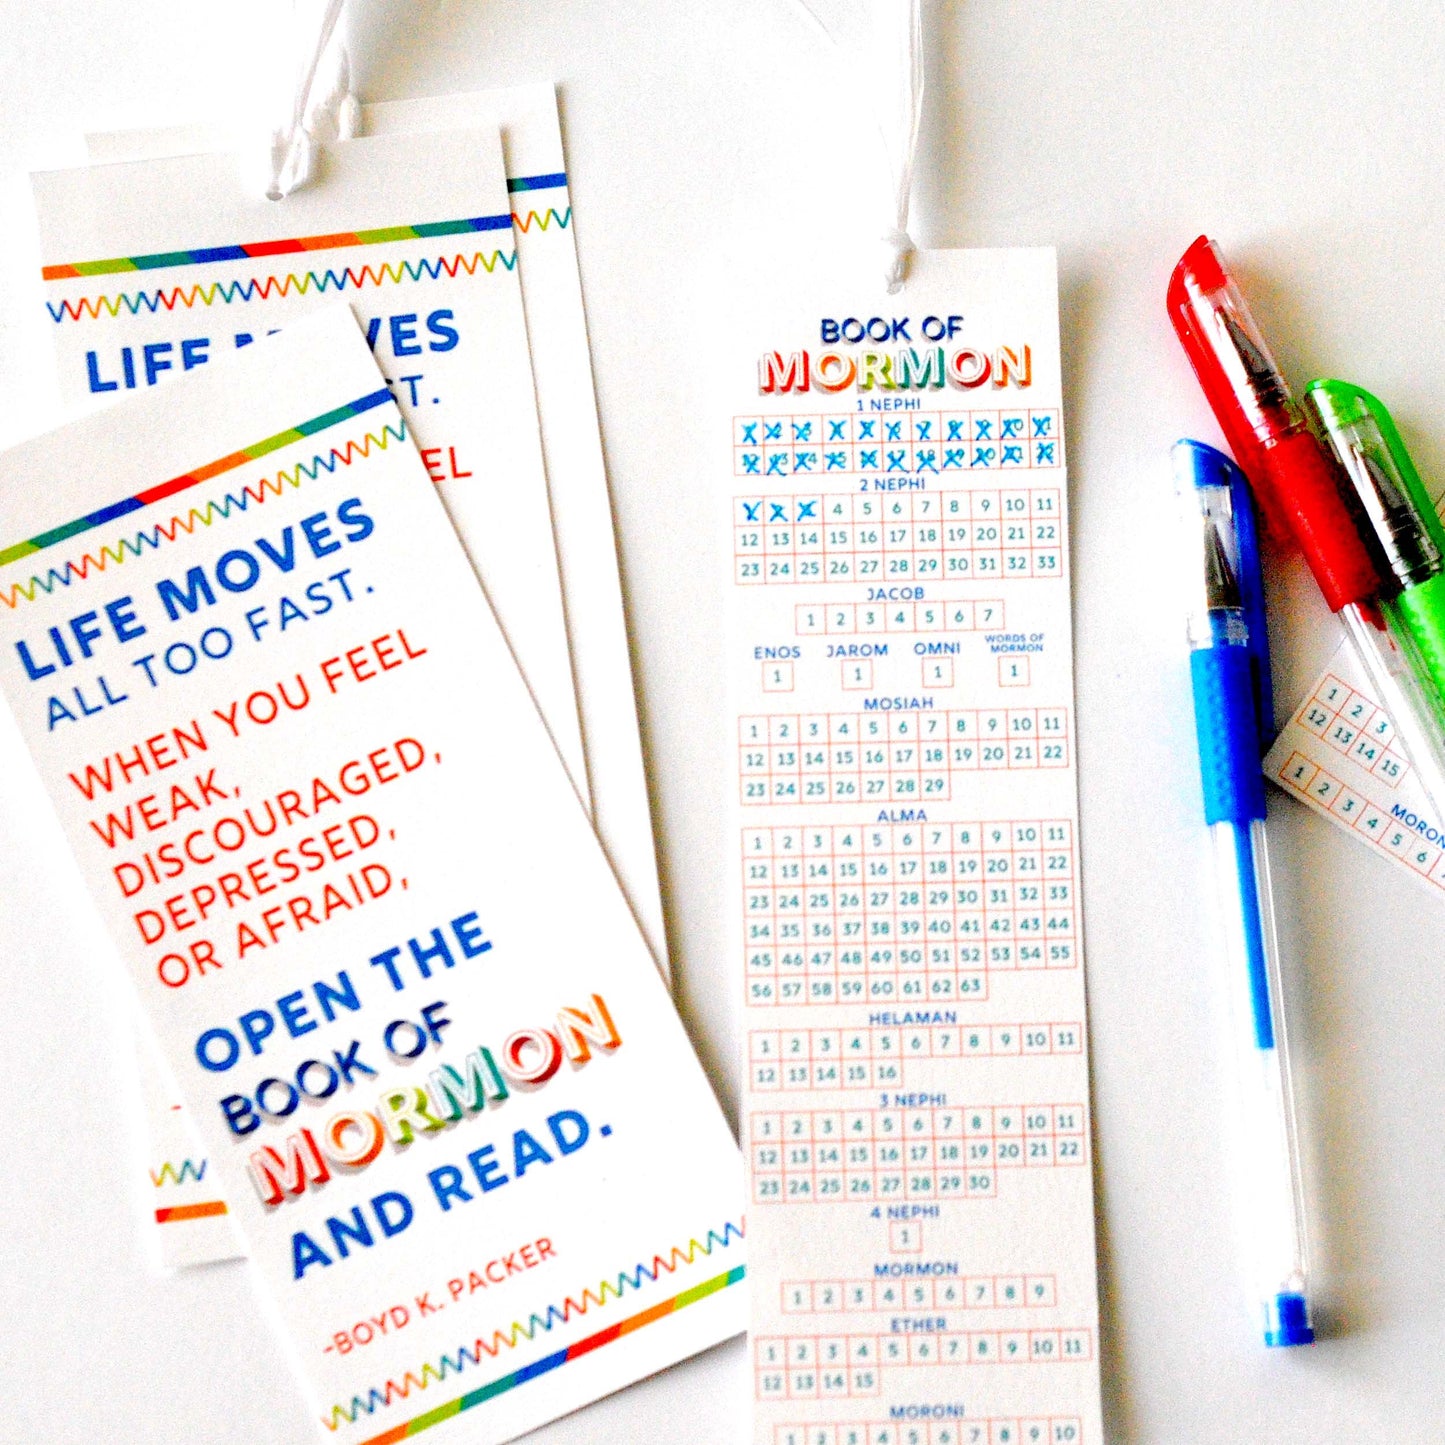 LIFE MOVES
ST.
EEL
LIFE MOVES
ALL TOO FAST.
WHEN YOU FEEL
WEAK,
DISCOURAGED,
DEPRESSED,
OR AFRAID,
OPEN THE
BOOK OF
MORMON
AND READ.
-BOYD K. PACKER
BOOK OF
MORMON
1 NEPHI
1 2 3 4 5 6 7 8 9 10 11
12 13 14 15 16 17 18 19 20 21 22
2 NEPHI
1 2 3 4 5 6 7 8 9 10 11
12 13 14 15 16 17 18 19 20 21 22
23 24 25 26 27 28 29 30 31 32 33
JACOB
1 2 3 4 5 6 7
ENOS JAROM OMNI WORDS OF
MORMON
1 1 1 1
MOSIAH
1 2 3 4 5 6 7 8 9 10 11
12 13 14 15 16 17 18 19 20 21 22
23 24 25 26 27 28 29
ALMA
1 2 3 4 5 6 7 8 9 10 11
12 13 14 15 16 17 18 19 20 21 22
23 24 25 26 27 28 29 30 31 32 33
34 35 36 37 38 39 40 41 42 43 44
45 46 47 48 49 50 51 52 53 54 55
56 57 58 59 60 61 62 63
HELAMAN
1 2 3 4 5 6 7 8 9 10 11
12 13 14 15 16
3 NEPHI
1 2 3 4 5 6 7 8 9 10 11
12 13 14 15 16 17 18 19 20 21 22
23 24 25 26 27 28 29 30
4 NEPHI
1
MORMON
1 2 3 4 5 6 7 8 9
ETHER
1 2 3 4 5 6 7 8 9 10 11
12 13 14 15
MORONI
1 2 3 4 5 6 7 8 9 10
1 2 3
12 13 14 15
MORON
1 2 3 4 5 6